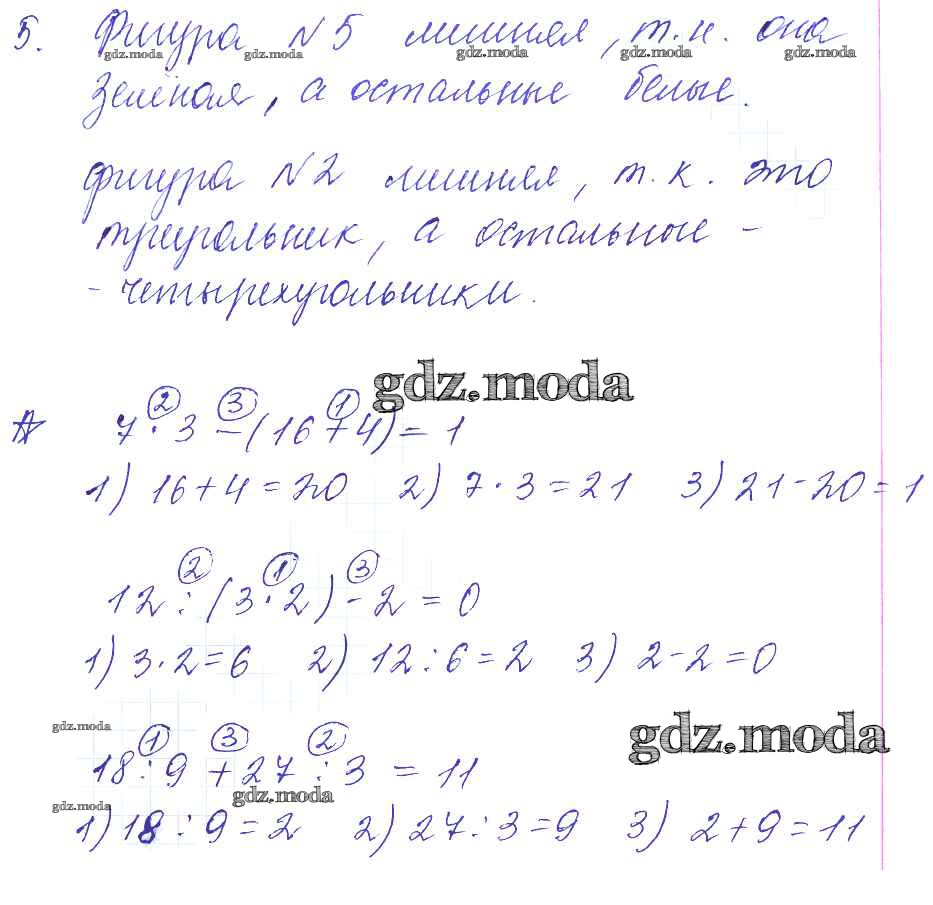 5. Фигура №5 лишняя, т.к. она
gdz.moda gdz.moda gdz.moda gdz.moda gdz.moda
зелёная, а остальные белые.
фигура №2 лишняя, т.к. это
треугольник, а остальные -
- четырехугольники.
gdz.moda
② ③ ①
☆ 7 · 3 - (16 + 4) = 1
1) 16 + 4 = 20 2) 7 · 3 = 21 3) 21 - 20 = 1
② ① ③
12 : (3 · 2) - 2 = 0
1) 3 · 2 = 6 2) 12 : 6 = 2 3) 2 - 2 = 0
gdz.moda gdz.moda
① ③ ②
18 : 9 + 27 : 3 = 11
gdz.moda gdz.moda
1) 18 : 9 = 2 2) 27 : 3 = 9 3) 2 + 9 = 11